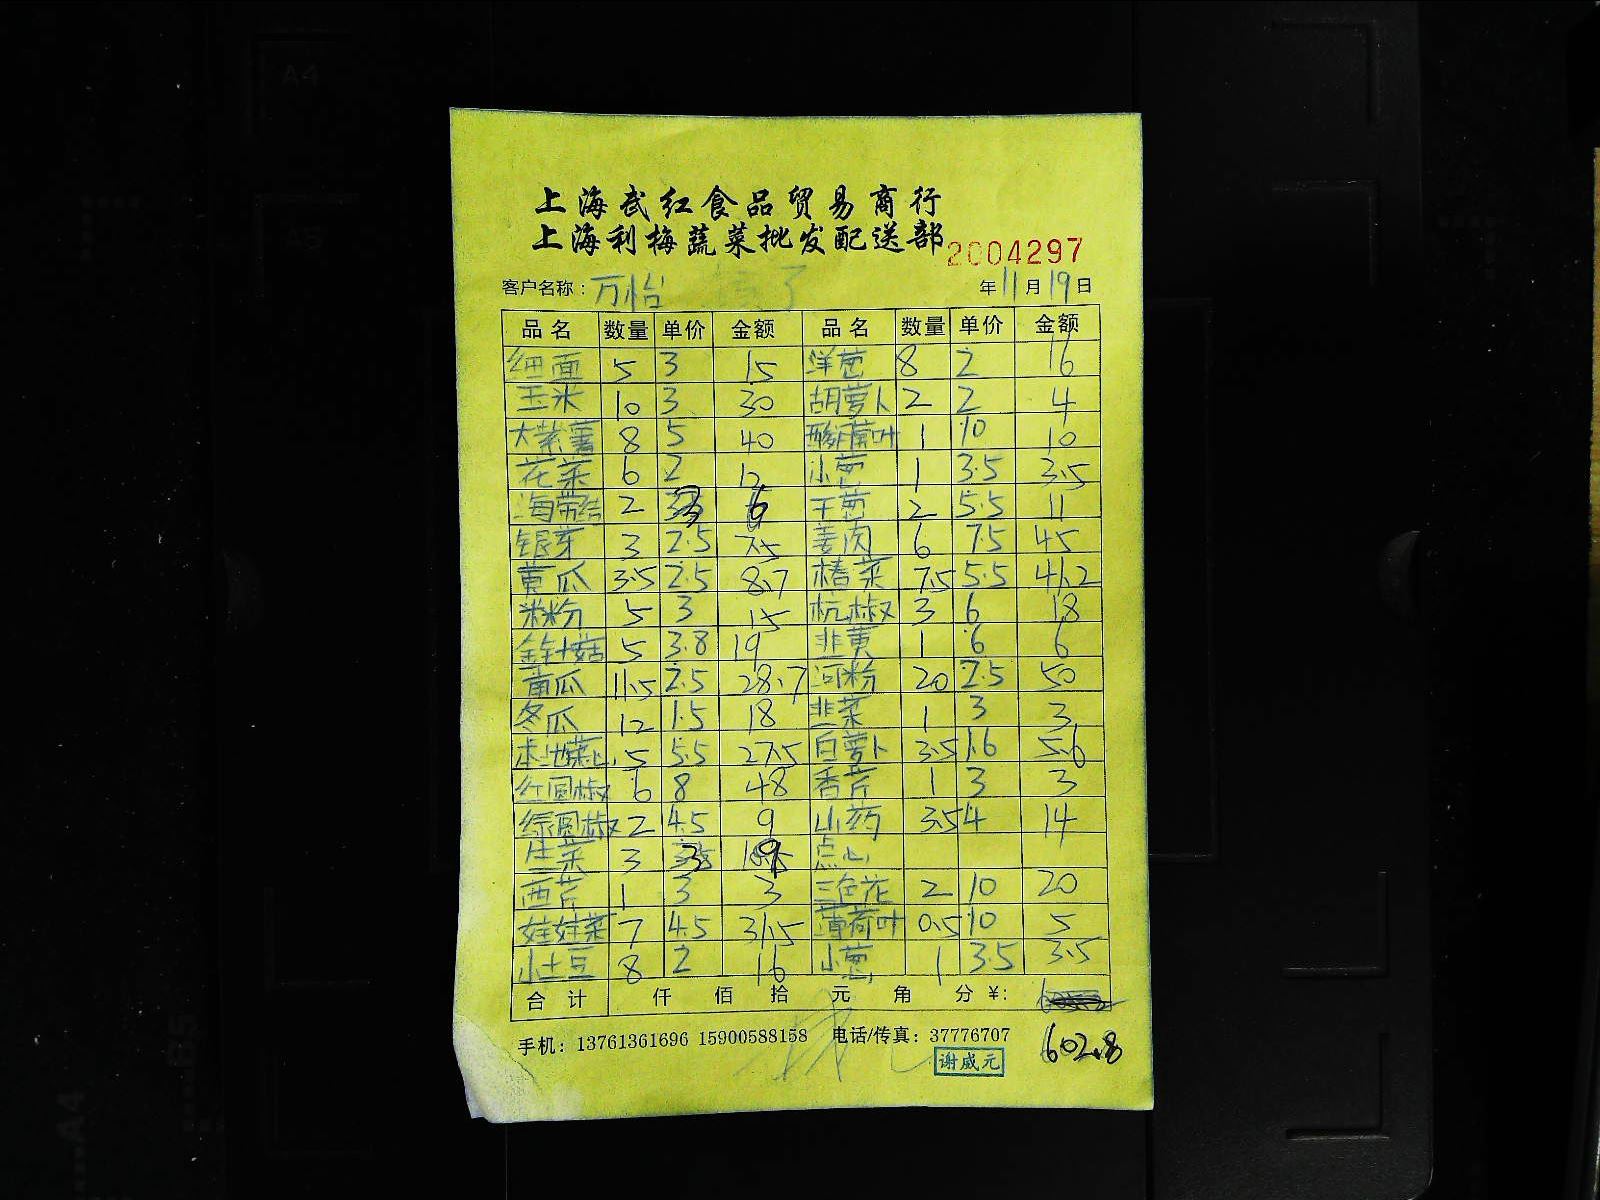 上海武红食品贸易商行
上海利梅蔬菜批发配送部 2004297
客户名称：万怡 年11月19日
品名 数量 单价 金额 品名 数量 单价 金额
细面 5 3 15 洋葱 8 2 16
玉米 10 3 30 胡萝卜 2 2 4
大紫薯 8 5 40 酸薄荷叶 1 10 10
花菜 6 2 12 小葱 1 3.5 3.5
海带结 2 3 6 干葱 2 5.5 11
银芽 3 2.5 7.5 姜肉 6 7.5 45
黄瓜 3.5 2.5 8.7 椿菜 7.5 5.5 41.2
米粉 5 3 15 杭椒 3 6 18
金针菇 5 3.8 19 韭黄 1 6 6
南瓜 11.5 2.5 28.7 河粉 20 2.5 50
冬瓜 12 1.5 18 韭菜 1 3 3
本地菜心 5 5.5 27.5 白萝卜 3.5 1.6 5.6
红圆椒 6 8 48 香芹 1 3 3
绿圆椒 2 4.5 9 山药 3.5 4 14
生菜 3 3 9 点心
西芹 1 3 3 三色花 2 10 20
娃娃菜 7 4.5 31.5 薄荷叶 0.5 10 5
小土豆 8 2 16 小葱 1 3.5 3.5
合计 仟 佰 拾 元 角 分 ￥:
手机：13761361696 15900588158 电话/传真：37776707 602.8
谢威元